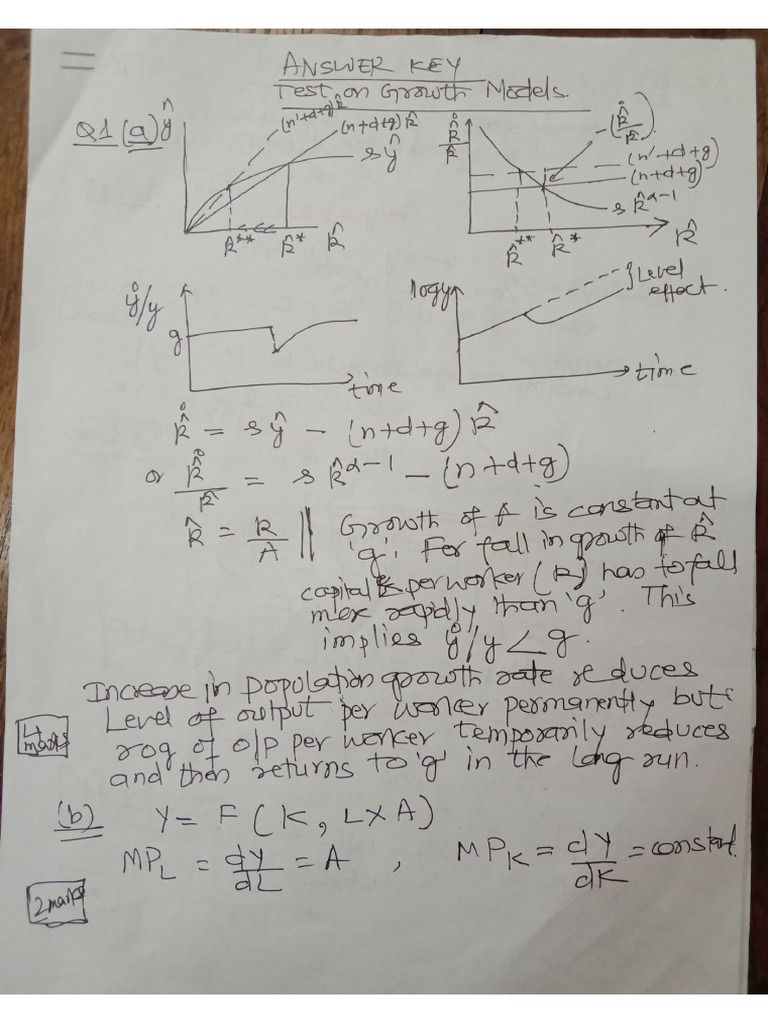 ANSWER KEY
Test on Growth Models.
Q1 (a)
ŷ
(n'+d+g)k̂
(n+d+g)k̂
sŷ
k̂**
k̂*
k̂
k̂̇/k̂
-(k̂̇/k̂)
(n'+d+g)
(n+d+g)
s k̂^α-1
k̂**
k̂*
k̂
ẏ/y
g
time
logy
Level
effect.
time
k̂̇ = sŷ - (n+d+g) k̂
or k̂̇/k̂ = s k̂^α-1 - (n+d+g)
k̂ = k/A || Growth of A is constant at
'g'. For fall in growth of k̂
capital per worker (k) has to fall
more rapidly than 'g'. This
implies ẏ/y < g.
Increase in population growth rate reduces
Level of output per worker permanently but
4 marks
rog of o/p per worker temporarily reduces
and then returns to 'g' in the long run.
(b) Y = F (K, L×A)
MP_L = dY/dL = A , MP_K = dY/dK = constant.
2 marks